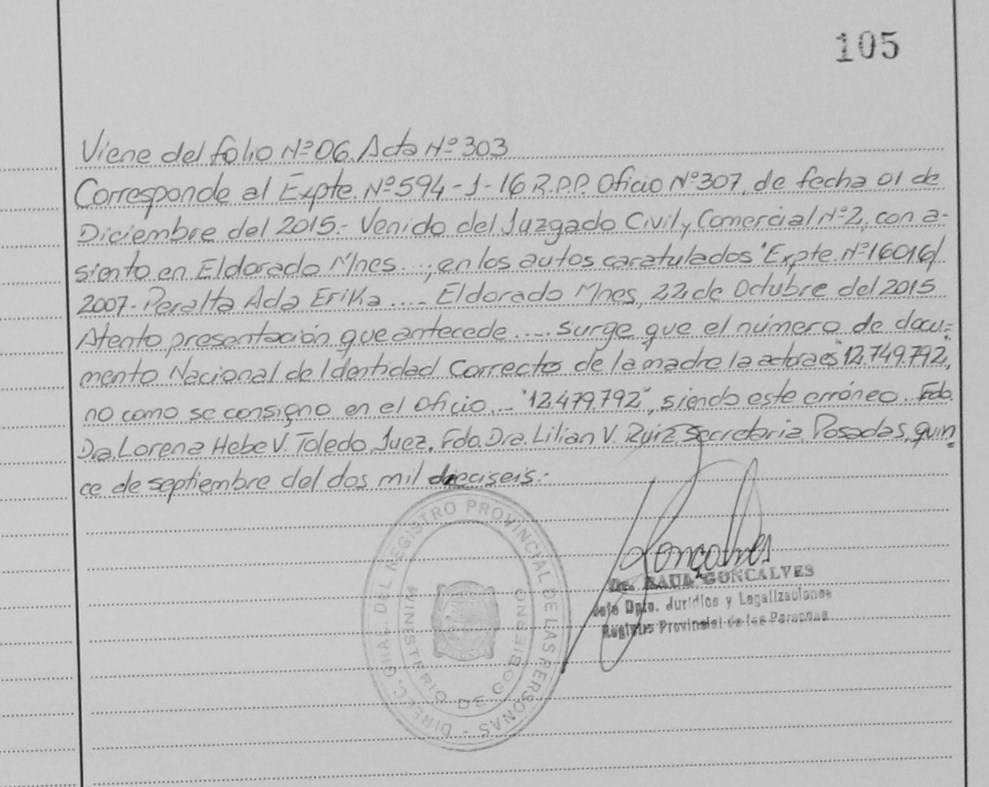 105
Viene del folio Nº 06 Acta Nº 303
Corresponde al Expte. Nº 594-1-16 R.P.P. Oficio Nº 307, de fecha 01 de
Diciembre del 2015.- Venido del Juzgado Civil y Comercial Nº 2, con a-
siento en Eldorado Mnes. ..., en los autos caratulados "Expte. Nº 16016/
2007- Peralta Ada Erika .... Eldorado Mnes, 22 de Octubre del 2015
Atento presentación que antecede .... surge que el número de docu-
mento Nacional de Identidad Correcto de la madre la actora es "12.749.792,
no como se consigno en el oficio ... "12.479.792", siendo este erróneo. Fdo.
Dra. Lorena Hebe V. Toledo Juez. Fdo. Dra. Lilian V. Ruiz Secretaria. Posadas, quin-
ce de septiembre del dos mil dieciseis.-
DIREC. GRAL. DEL REGISTRO PROVINCIAL DE LAS PERSONAS -
MINISTERIO DE GOBIERNO
Goncalves
Dr. RAUL GONCALVES
Jefe Dpto. Jurídico y Legalizaciones
Registro Provincial de las Personas